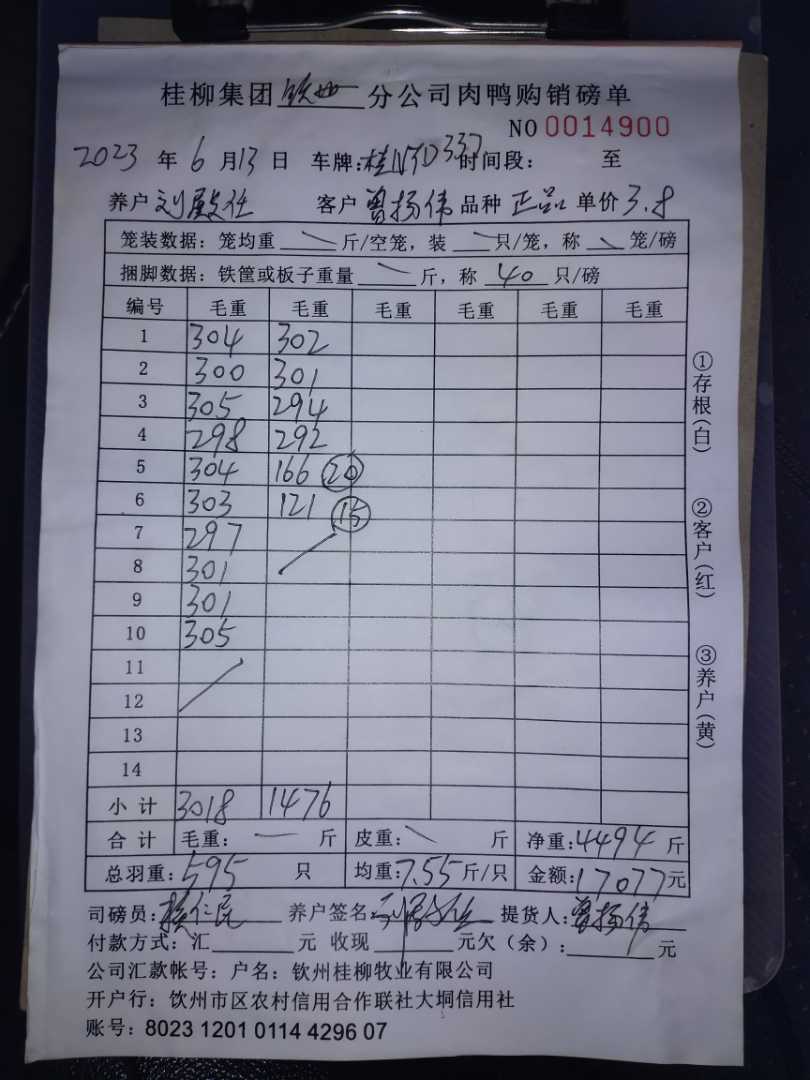 桂柳集团 钦州 分公司肉鸭购销磅单
NO 0014900
2023 年 6 月 13 日 车牌: 桂NTD337 时间段: 至
养户 刘殿任 客户 曾扬伟 品种 正品 单价 3.8
笼装数据: 笼均重 斤/空笼, 装 只/笼, 称 笼/磅
捆脚数据: 铁筐或板子重量 斤, 称 40 只/磅
编号 毛重 毛重 毛重 毛重 毛重 毛重
1 304 302
2 300 301
3 305 294
4 298 292
5 304 166 20
6 303 121 15
7 297
8 301
9 301
10 305
11
12
13
14
小计 3018 1476
合计 毛重: 斤 皮重: 斤 净重: 4494 斤
总羽重: 595 只 均重: 7.55 斤/只 金额: 17077 元
司磅员: 养户签名: 提货人: 曾扬伟
付款方式: 汇 元 收现 元欠(余): 元
公司汇款帐号: 户名: 钦州桂柳牧业有限公司
开户行: 饮州市区农村信用合作联社大垌信用社
账号: 8023 1201 0114 4296 07
①存根(白)
②客户(红)
③养户(黄)